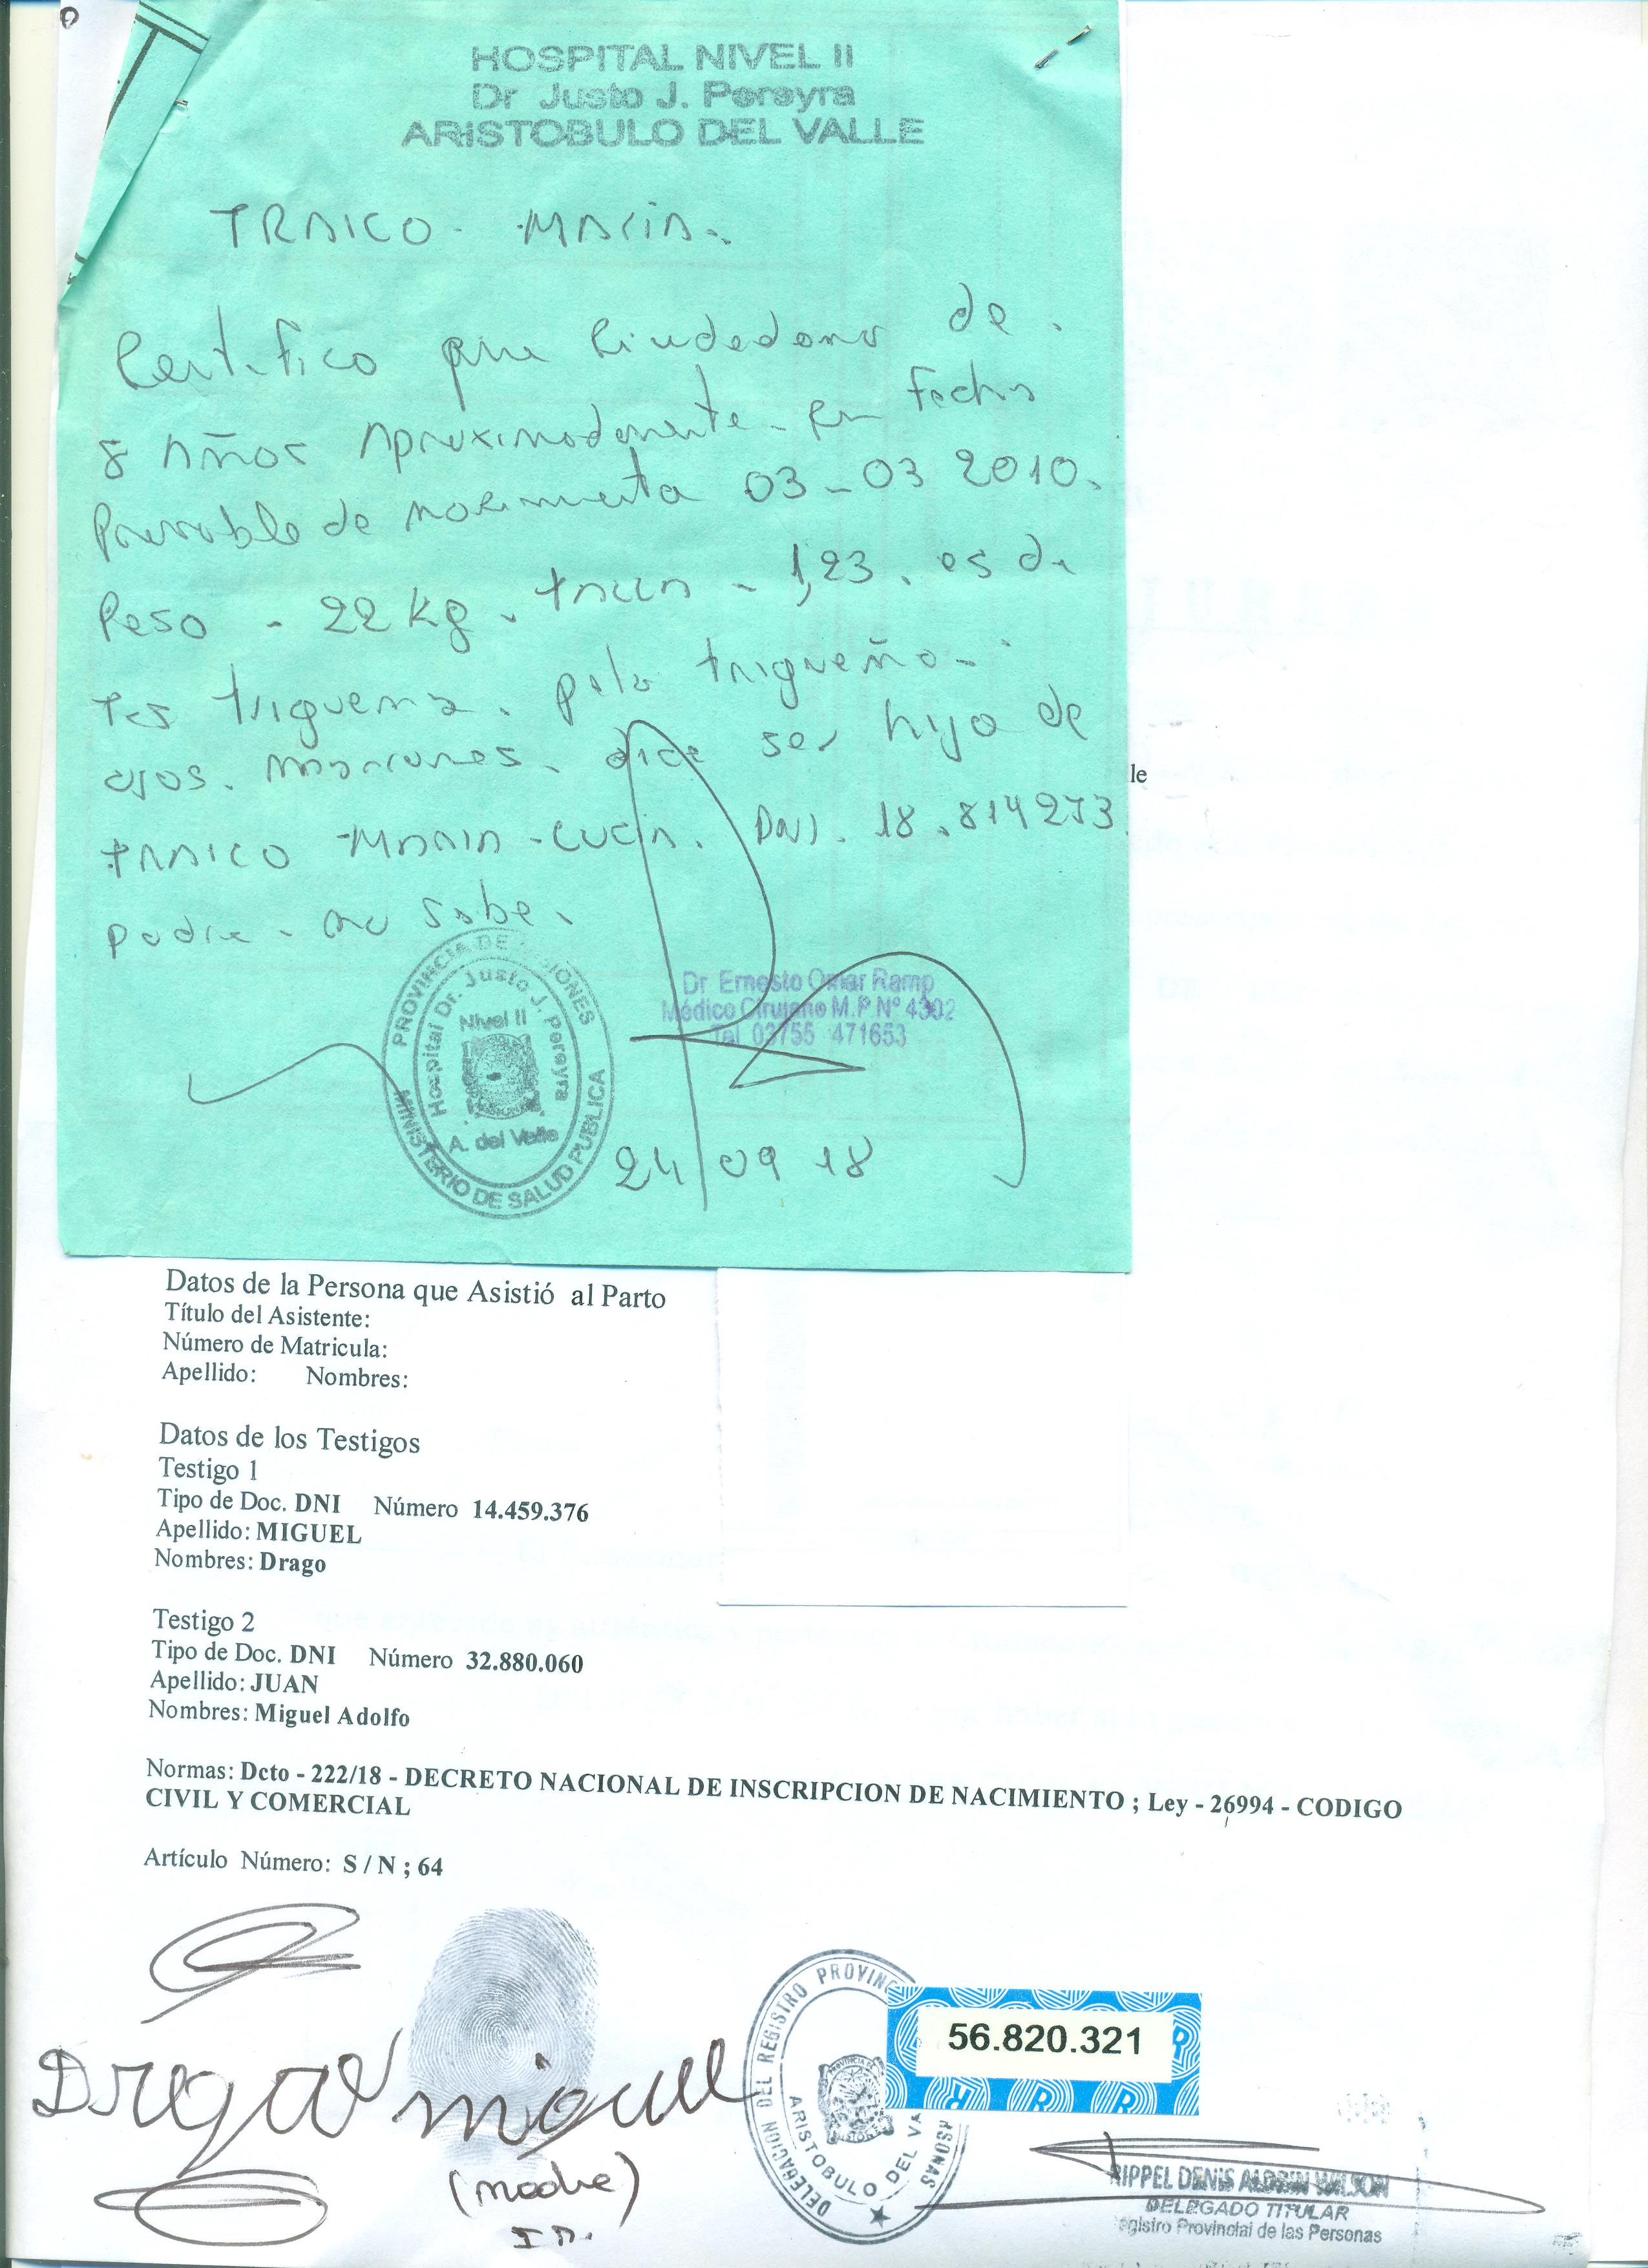 HOSPITAL NIVEL II
Dr Justo J. Pereyra
ARISTOBULO DEL VALLE
TRAICO - MARIA.
Certifico que Ciudadano de.
8 Años Aproximadamente - en fecha
Provable de nacimiento 03-03 2010.
Peso - 22 kg. talla - 1,23. es de
Tes triguena. pelo trigueño -
ojos. marrones. dice ser hija de
TRAICO - MARIA - LUCIA. DNI. 18.814273
padre - no sabe.
PROVINCIA DE MISIONES
Hospital Dr. Justo J. Pereyra
Nivel II
A. del Valle
MINISTERIO DE SALUD PUBLICA
Dr Ernesto Omar Ramp
Médico Cirujano M.P.Nº 4302
Tel 03755 471653
24/09 18
le
Datos de la Persona que Asistió al Parto
Título del Asistente:
Número de Matricula:
Apellido: Nombres:
Datos de los Testigos
Testigo 1
Tipo de Doc. DNI Número 14.459.376
Apellido: MIGUEL
Nombres: Drago
Testigo 2
Tipo de Doc. DNI Número 32.880.060
Apellido: JUAN
Nombres: Miguel Adolfo
Normas: Dcto - 222/18 - DECRETO NACIONAL DE INSCRIPCION DE NACIMIENTO ; Ley - 26994 - CODIGO
CIVIL Y COMERCIAL
Artículo Número: S / N ; 64
Drago miguel
(madre)
I D.
DELEGACION DEL REGISTRO PROVINC
SONAS
ARISTOBULO DEL VA
56.820.321
RIPPEL DENIS WILSON
DELEGADO TITULAR
egistro Provincial de las Personas